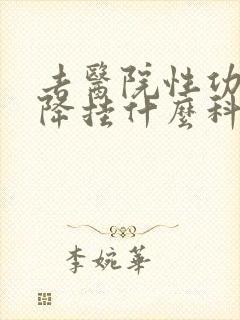 去醫院性功
降挂什麼科
李婉華